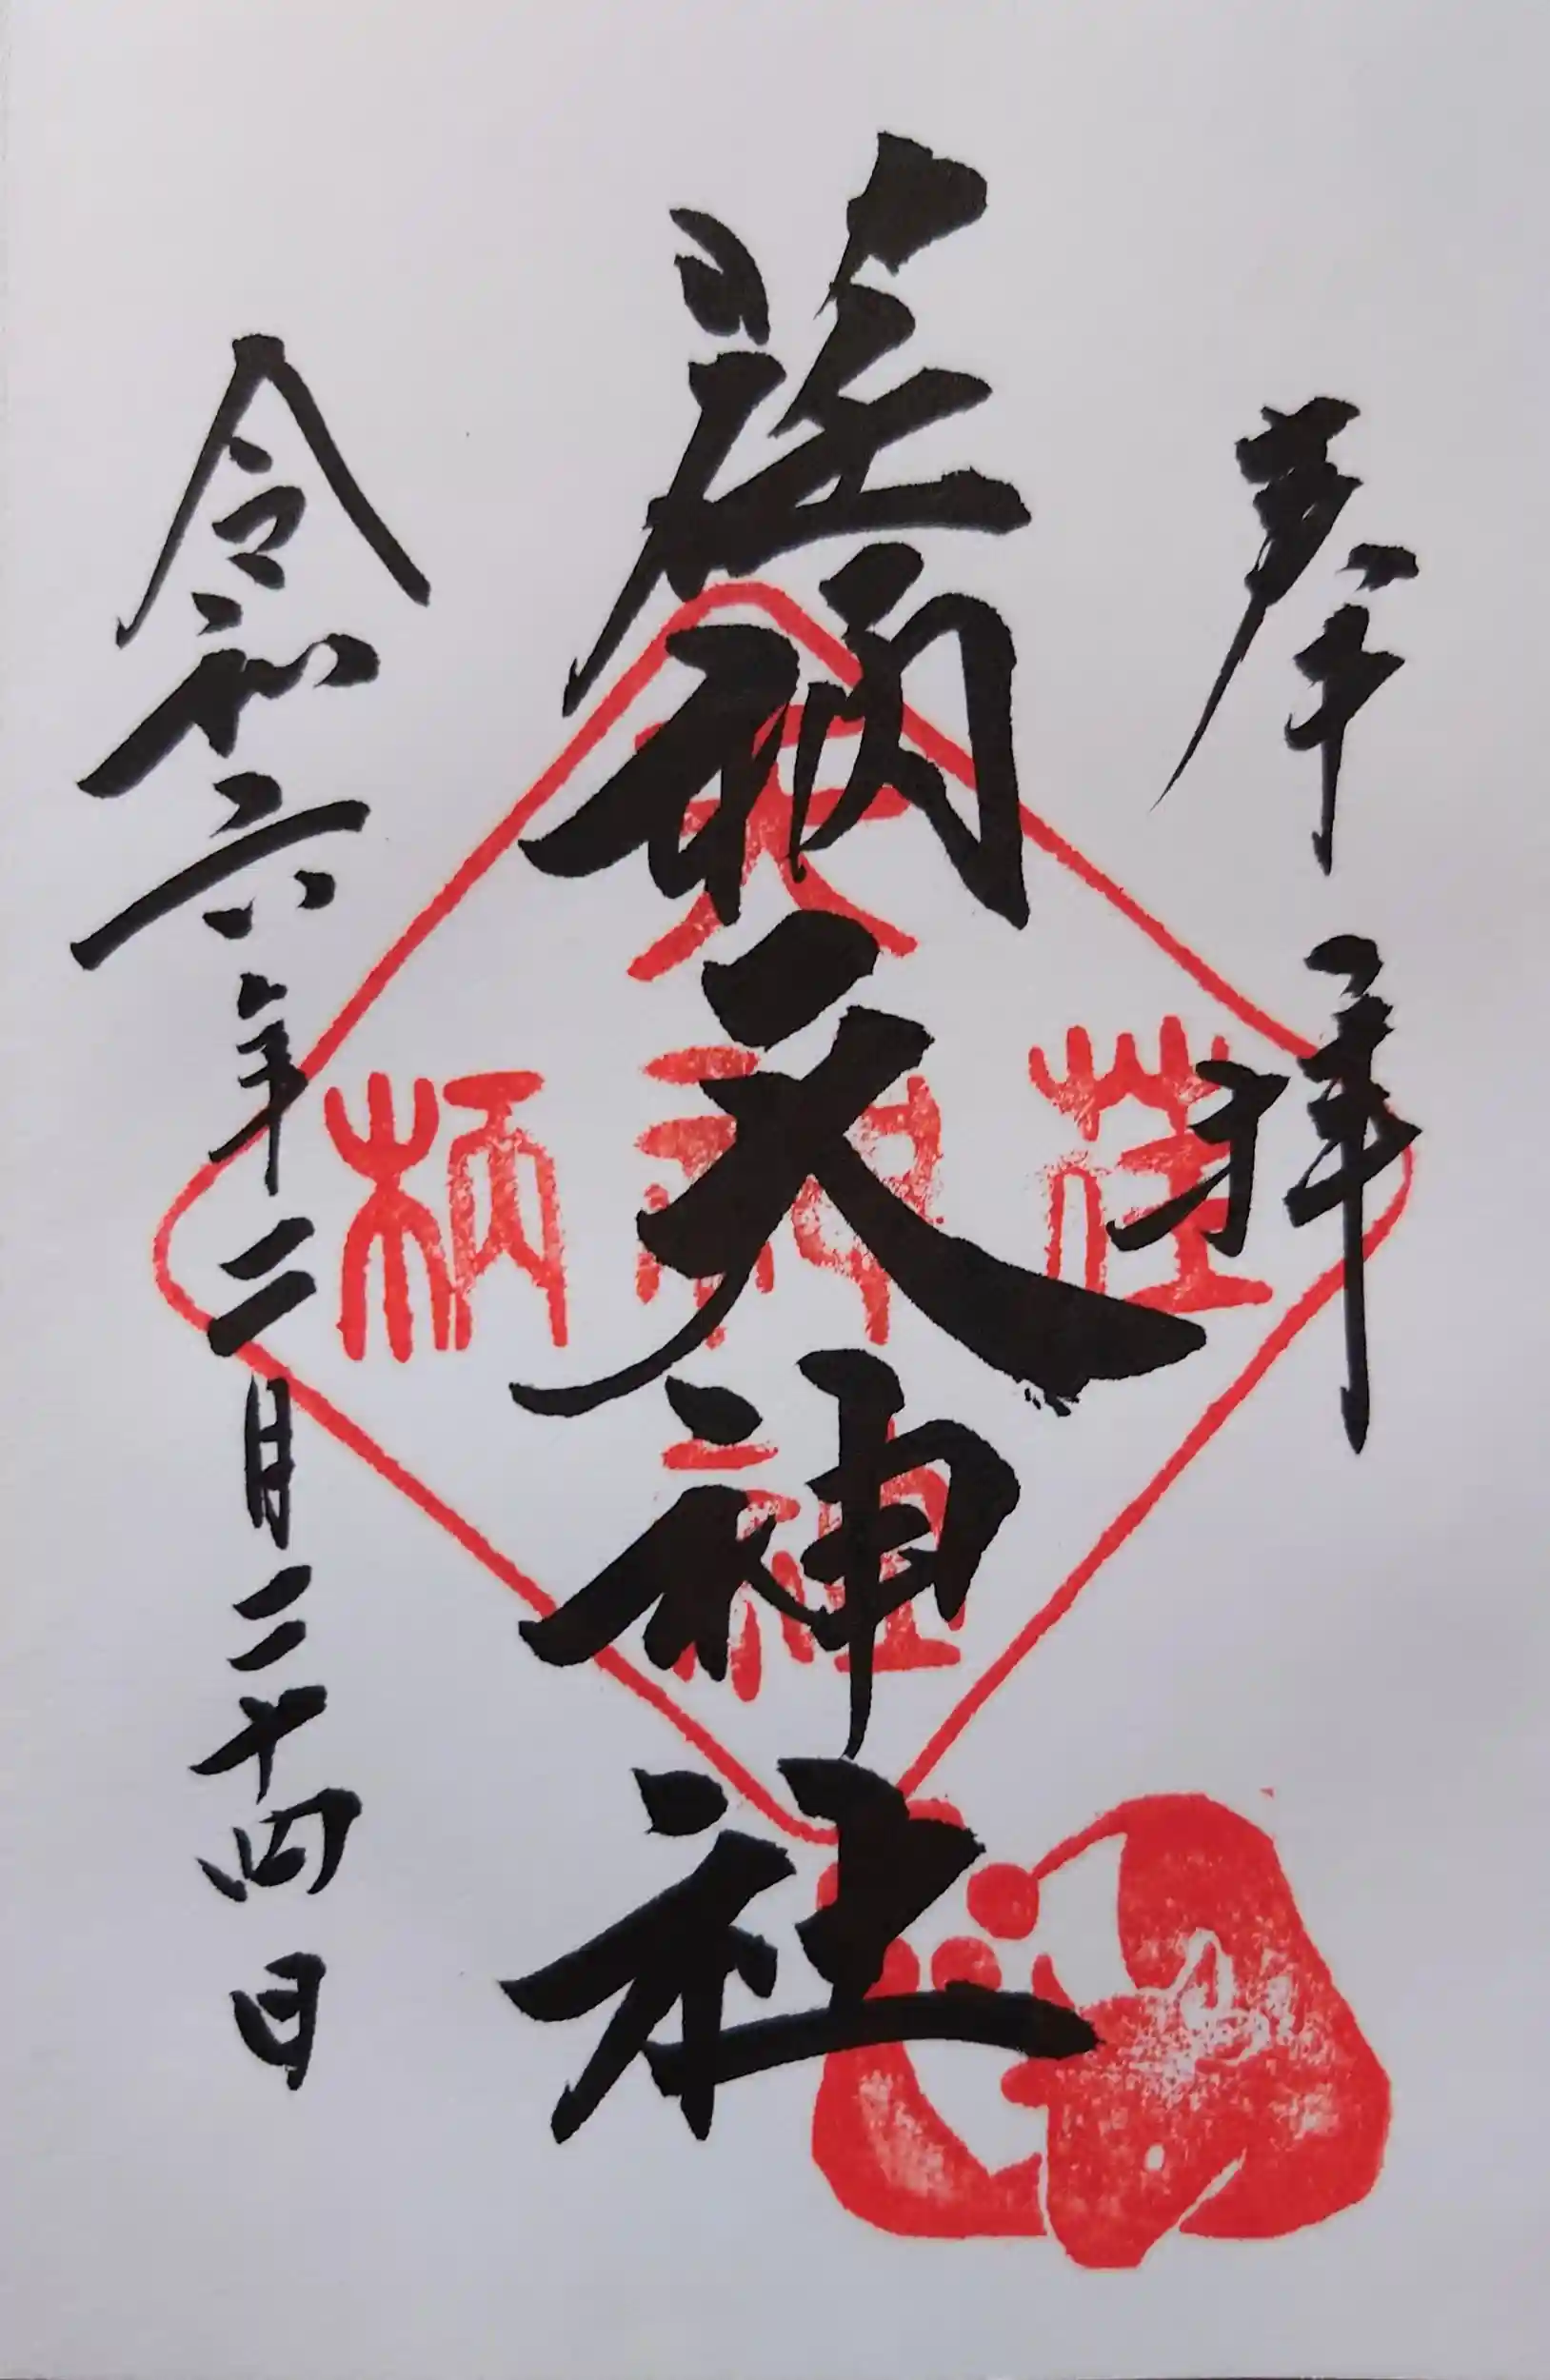 奉拝
荏柄天神社
令和六年二月二十四日
荏柄天神社